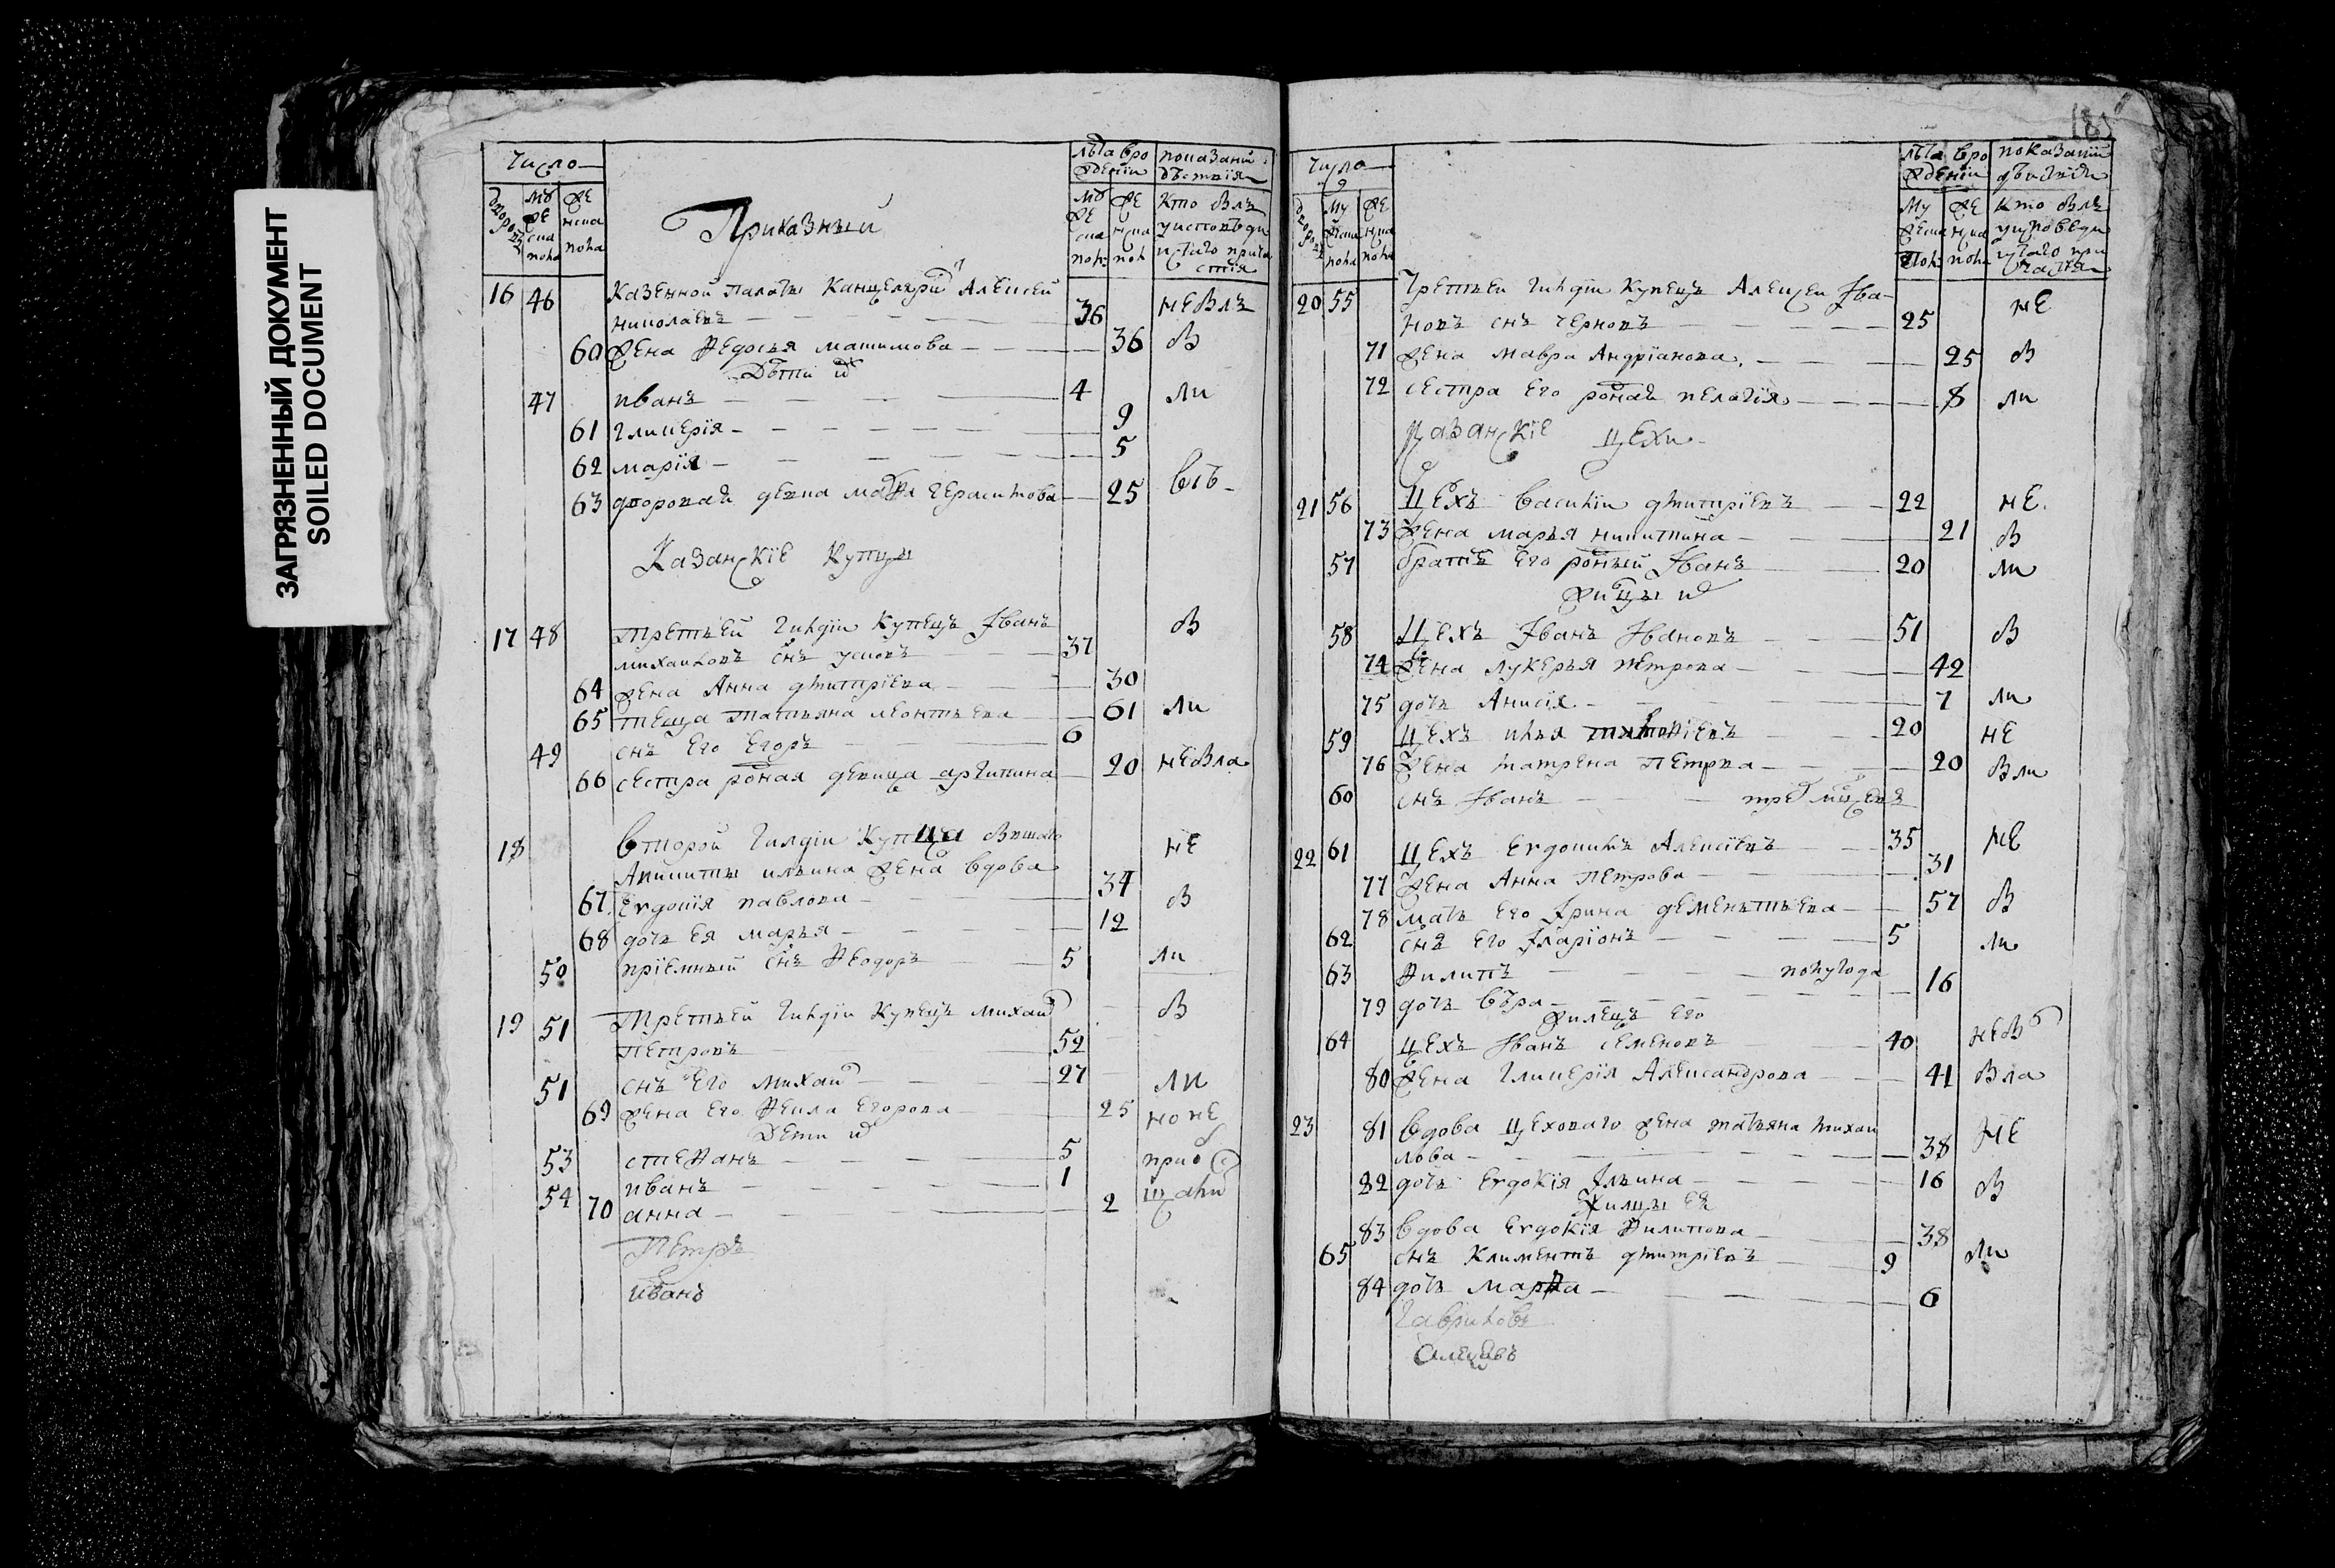 ЗАГРЯЗНЕННЫЙ ДОКУМЕНТ
SOILED DOCUMENT
Число
лѣта вро
жденїи
показанїи
дѣствїя
дворовъ
Мꙋ
же
ска
пола
же
нска
пола
Приказныи
кто былъ
16 46 Казенной палаты Канцеляри Алеѯей
николаевъ 36 не былъ
60 жена Ѳедосья маѯимова 36 в
Дѣти их
47 иванъ 4 ли
61 гликерїя 9
62 марїя 5
63 дворовая девка марѳа герасимова 25 всѣ
Казанскїе Купцы
17 48 третьей гилдіи Купецъ Іванъ
михаиловъ снъ усковъ 37 в
64 жена Анна дмитрїева 30
65 теща татьяна леонтьева 61 ли
49 снъ Его Егоръ 6
66 сестра роная девица агрипина 20 небыла
18 второй гилдіи Купца
Никиты ильина жена вдова не
67 Евдокїя павлова 34 в
68 дочь ея марья 12
50 прїемный снъ Ѳеодоръ 5 ли
19 51 Третьей гилдїи Купецъ михаи
петровъ 52 в
51 снъ Его михаи 27 ли
69 жена Его Ѳекла Егорова 25 но не
Дети их
53 стеѳанъ 5
54 иванъ 1
70 анна 2
Петръ
иванъ
185
Число
лѣта вро
жденїи
показанїи
Му
жска
пола
же
нска
пола
кто былъ
20 55 Третьей гилдїи Купецъ Алеѯеи Іва
новъ снъ черновъ 25 не
71 жена мавра Андрїанова 25 в
72 сестра Его роная пелагїя 8 ли
Казанскїе цехи
21 56 Цехъ василїи дмитрїевъ 22 не
73 жена марья никитина 21 в
57 братъ Его роный Іванъ 20 ли
жилцы их
58 Цехъ Іванъ Івановъ 51 в
74 жена лукерья петрова 42
75 дочь Анисїя 7 ли
59 Цехъ илья 20 не
76 жена матрена петрова 20 в ли
60 снъ Іванъ тре мцсевъ
22 61 Цехъ Евдокимъ Алеѯїевъ 35 не
77 жена Анна петрова 31
78 мать Его Ірина дементьева 57 в
62 снъ Его Іларїонъ 5 ли
63 Ѳилипъ полугода
79 дочь вѣра 16
жилецъ Его
64 цехъ Іванъ семеновъ 40
80 жена гликерїя Алеѯандрова 41 была
23 81 вдова цеховаго жена татьяна михаи
лова 38 не
82 дочь Евдокїя Ільина 16 в
Жилцы ея
83 вдова Евдокїя Ѳилипова 38
65 снъ Климентъ дмитрїевъ 9 ли
84 дочь марѳа 6
Гавриловъ